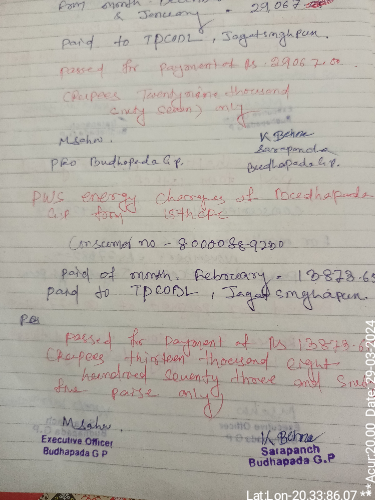 from month
& January . 29,067
paid to TPCODL, Jagatsinghpur.
passed for Payment of Rs. 29067.00
(Rupees Twentynine thousand
sixty seven) only
M Sahu.
K Behera
Sarapancha
PEO Budhapada G.P.
Budhapada G.P.
PWS energy charges of
G.P from 15th CFC
Consumer no - 8000088-9200
paid of month. February. 13873.65
paid to TPCODL, Jagatsinghapur.
passed for payment of Rs 13873.65
(Rupees thirteen thousand eight
hundred seventy three and Sixty
five paise only)
M Sahu.
K Behera
Executive Officer
Budhapada G P
Sarapanch
Budhapada G.P
Lat Lon-20.33:86.07 **Acur:20.00 Date:29-03-2024